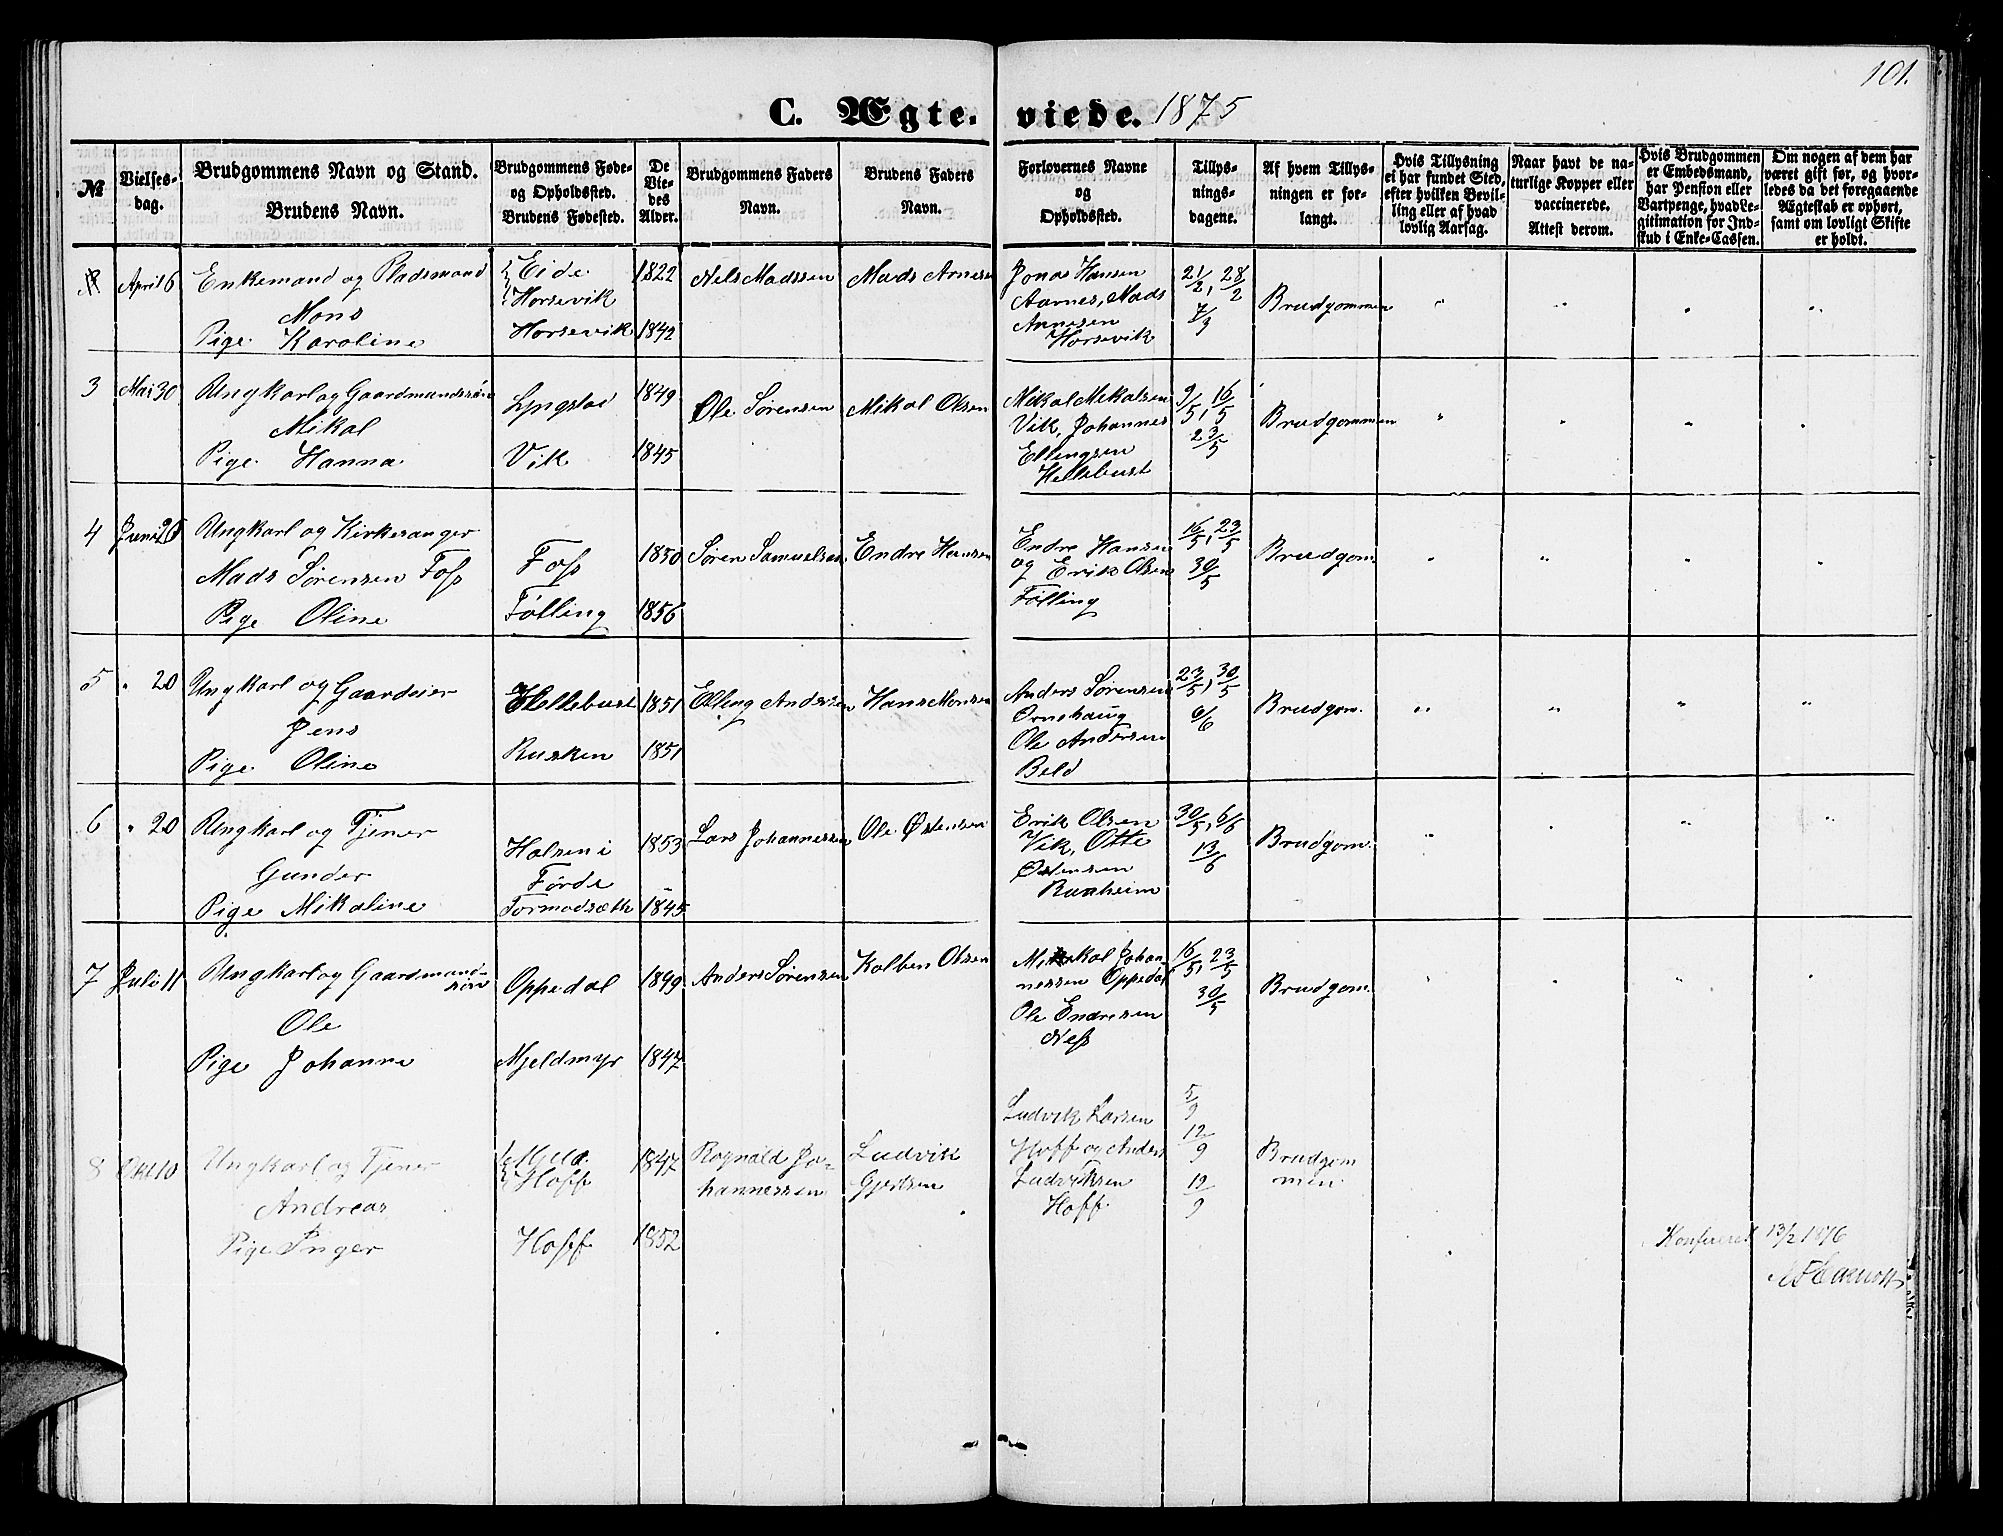 101.
C. Ægteviede. 1875
№
Vielsesdag.
Brudgommens Navn og Stand.
Brudens Navn.
Brudgommens Føde- og Opholdssted.
Brudens Fødested.
De Viedes Alder.
Brudgommens Faders Navn.
Brudens Faders Navn.
Forlovernes Navne og Opholdssted.
Tillysningsdagene.
Af hvem Tillysningen er forlangt.
Hvis Tillysning ei har fundet Sted, efter hvilken Bevilling eller af hvad lovlig Aarsag.
Naar havt de naturlige Kopper eller vaccinerede.
Attest derom.
Hvis Brudgommen er Embedsmand, har Pension eller Vartpenge, hvad Legitimation for Indskud i Enke-Cassen.
Om nogen af dem har været gift før, og hvorledes da det foregaaende Ægteskab er ophørt, samt om lovligt Skifte er holdt.
April 6 Enkemand og Pladsmand Eide 1822 Nels Madssen Mads Arnesen Jonas Hansen 21/2, 28/2
Mons Horsevik Aarnes, Mads 7/3 Brudgommen " " " "
Pige Karoline Horsevik 1842 Arnesen
Horsevik
3 Mai 30 Ungkarl og Gaardmandssøn Lyngstad 1849 Ole Sørensen Mikal Olsen Mikal Mikalsen 9/5, 16/5
Mikal Vik, Johannes 23/5 Brudgommen " " " "
Pige Hanna Vik 1845 Ellingsen
Hellebust
4 Juni 20 Ungkarl og Kirkesanger Foss 1850 Søren Samuelsen Endre Hansen Endre Hansen 16/5, 23/5
Mads Sørensen Foss og Erik Olsen 30/5 Brudgom. " " " "
Pige Oline Følling 1856 Følling
5 " 20 Ungkarl og Gaardeier Hellebust 1851 Elling Andersen Hans Monsen Anders Sørensen 23/5, 30/5
Jens Ørnehaug 6/6 Brudgom. " " " "
Pige Oline Rusken 1851 Ole Andersen
Beld
6 " 20 Ungkarl og Tjener Halsen i 1853 Lars Johannessen Ole Østensen Erik Olsen 30/5, 6/6
Gunder Førde Vik, Otte 13/6 Brudgom. " " " "
Pige Mikaline Tormodsæth 1845 Østensen
Runheim
7 Juli 11 Ungkarl og Gaardmandssøn Oppedal 1849 Anders Sørensen Kolben Olsen Mikal Johannessen Oppedal 16/5, 23/5
Ole Ole Endresen 30/5 Brudgom. " " " "
Pige Johanne Mjeldmyr 1847 Ness
8 Okt 10 Ungkarl og Tjener Mjeld. 1847 Rognald Johannessen Ludvik Gjertsen Ludvik Larsen 5/9
Andreas Hoff Hoff og Anders 12/9 Brudgommen
Pige Inger Hoff 1852 Ludviksen 19/9
Hoff.
Konfereret 13/2 1876